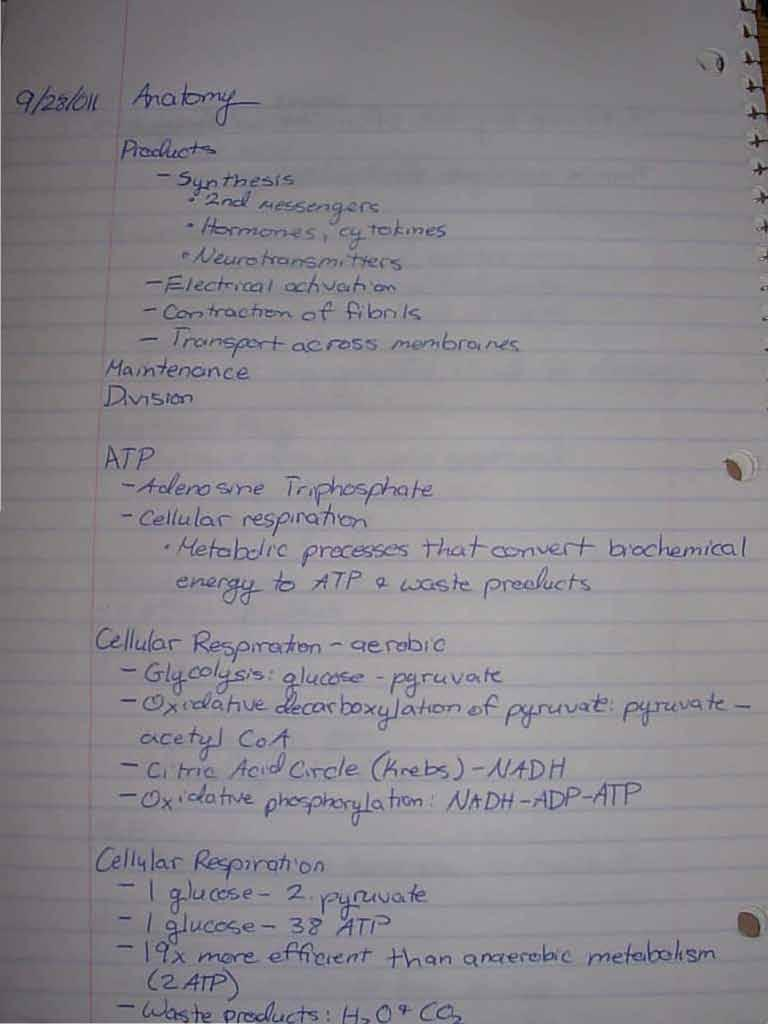 9/28/011 Anatomy
Products
- Synthesis
• 2nd messengers
• Hormones, cytokines
• Neurotransmitters
- Electrical activation
- Contraction of fibrils
- Transport across membranes
Maintenance
Division
ATP
- Adenosine Triphosphate
- Cellular respiration
• Metabolic processes that convert biochemical
energy to ATP & waste products
Cellular Respiration - aerobic
- Glycolysis: glucose - pyruvate
- Oxidative decarboxylation of pyruvat: pyruvate -
acetyl CoA
- Citric Acid Circle (Krebs) - NADH
- Oxidative phosphorylation: NADH - ADP - ATP
Cellular Respiration
- 1 glucose - 2 pyruvate
- 1 glucose - 38 ATP
- 19x more efficient than anaerobic metabolism
(2 ATP)
- Waste products: H2O & CO2